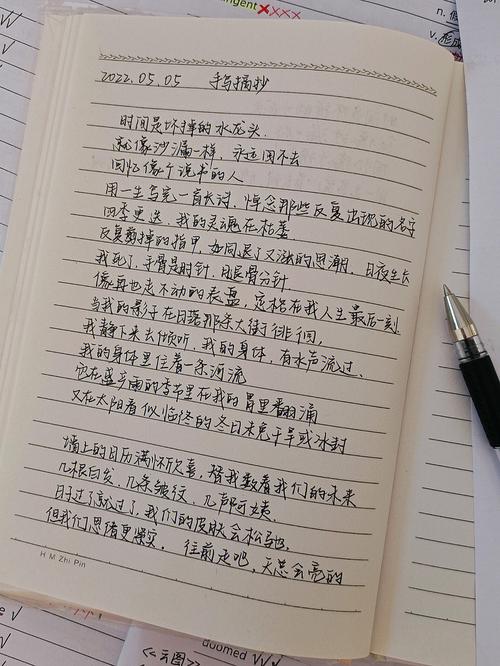 ngent xxxx
n. 
v. 形成
2022.05.05 手写摘抄
时间是坏掉的水龙头.
就像沙漏一样,永远回不去
回忆像个说书的人
用一生写完一首长诗,悼念那些反复出现的名字
四季更迭,我的灵魂在枯萎.
反复剪掉的指甲,如同退了又涨的思潮.日夜生长
我死了,手骨是时针,腿骨分针
像再也走不动的表盘,定格在我人生最后一刻
当我的影子在日落那条大街徘徊,
我静下来去倾听,我的身体,有水声流过.
我的身体里住着一条河流
它在盛产雨的季节里在我的胃里翻涌
又在太阳看似临终的冬日未免干旱或冰封
墙上的日历满怀欣喜,替我数着我们的未来
几根白发、几条皱纹、几声阿姨.
日子过了就过了,我们的皮肤会松弛.
但我们思绪更紧实. 往前走吧,天总会亮的
H M Zhi Pin
doomed √
《云图》